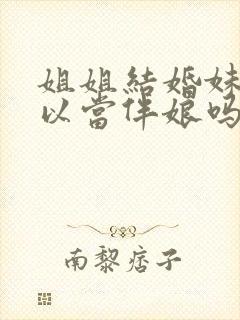 姐姐結婚妹
以當伴娘吗
南黎痞子